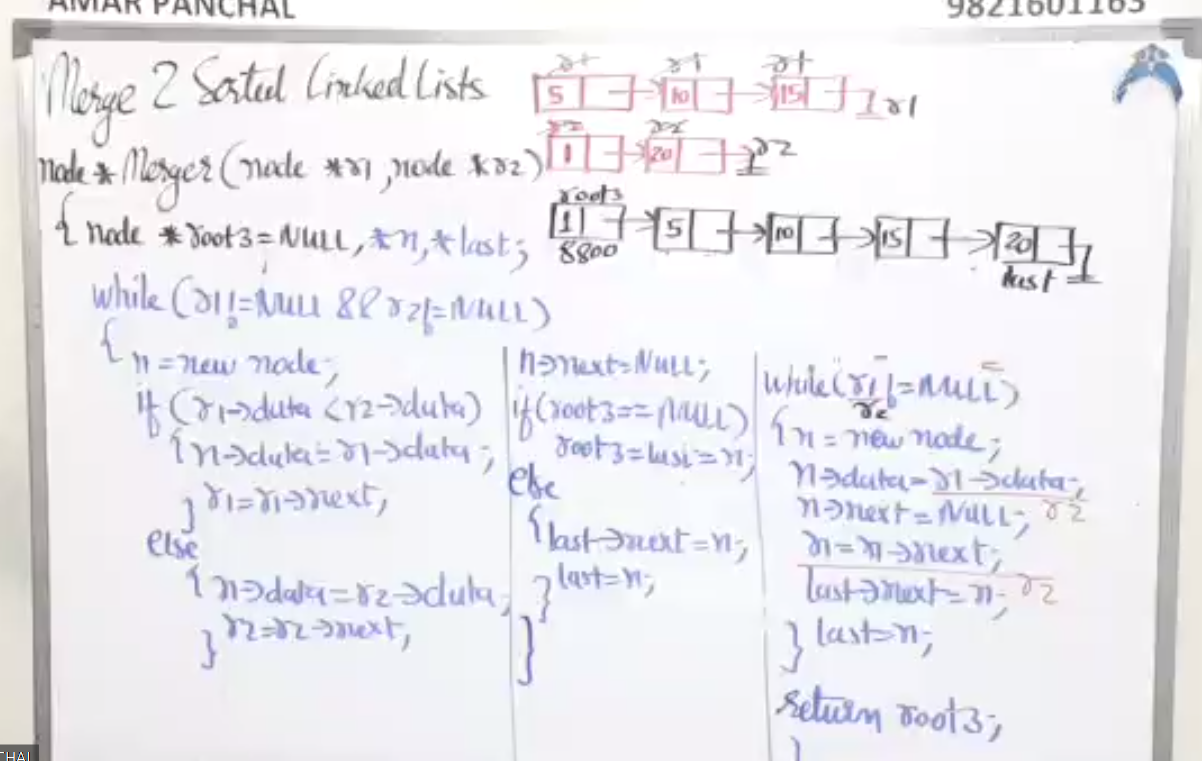 AMAR PANCHAL
9821601163
Merge 2 Sorted Linked Lists
5 10 15 r1
1 20 r2
node * Merger (node *r1, node *r2)
root3
1 5 10 15 20
8800
last
{ node *root3=NULL, *n, *last;
while (r1!=NULL && r2!=NULL)
{ n = new node;
if (r1->data < r2->data)
{ n->data = r1->data;
} r1=r1->next;
else
{ n->data=r2->data;
} r2=r2->next;
n->next=NULL;
if(root3==NULL)
root3=last=n;
else
{ last->next=n;
} last=n;
}
while(r1!=NULL)
r2
{ n = new node;
n->data=r1->data;
n->next=NULL; r2
r1=r1->next;
last->next=n; r2
} last=n;
return root3;
}
CHAL